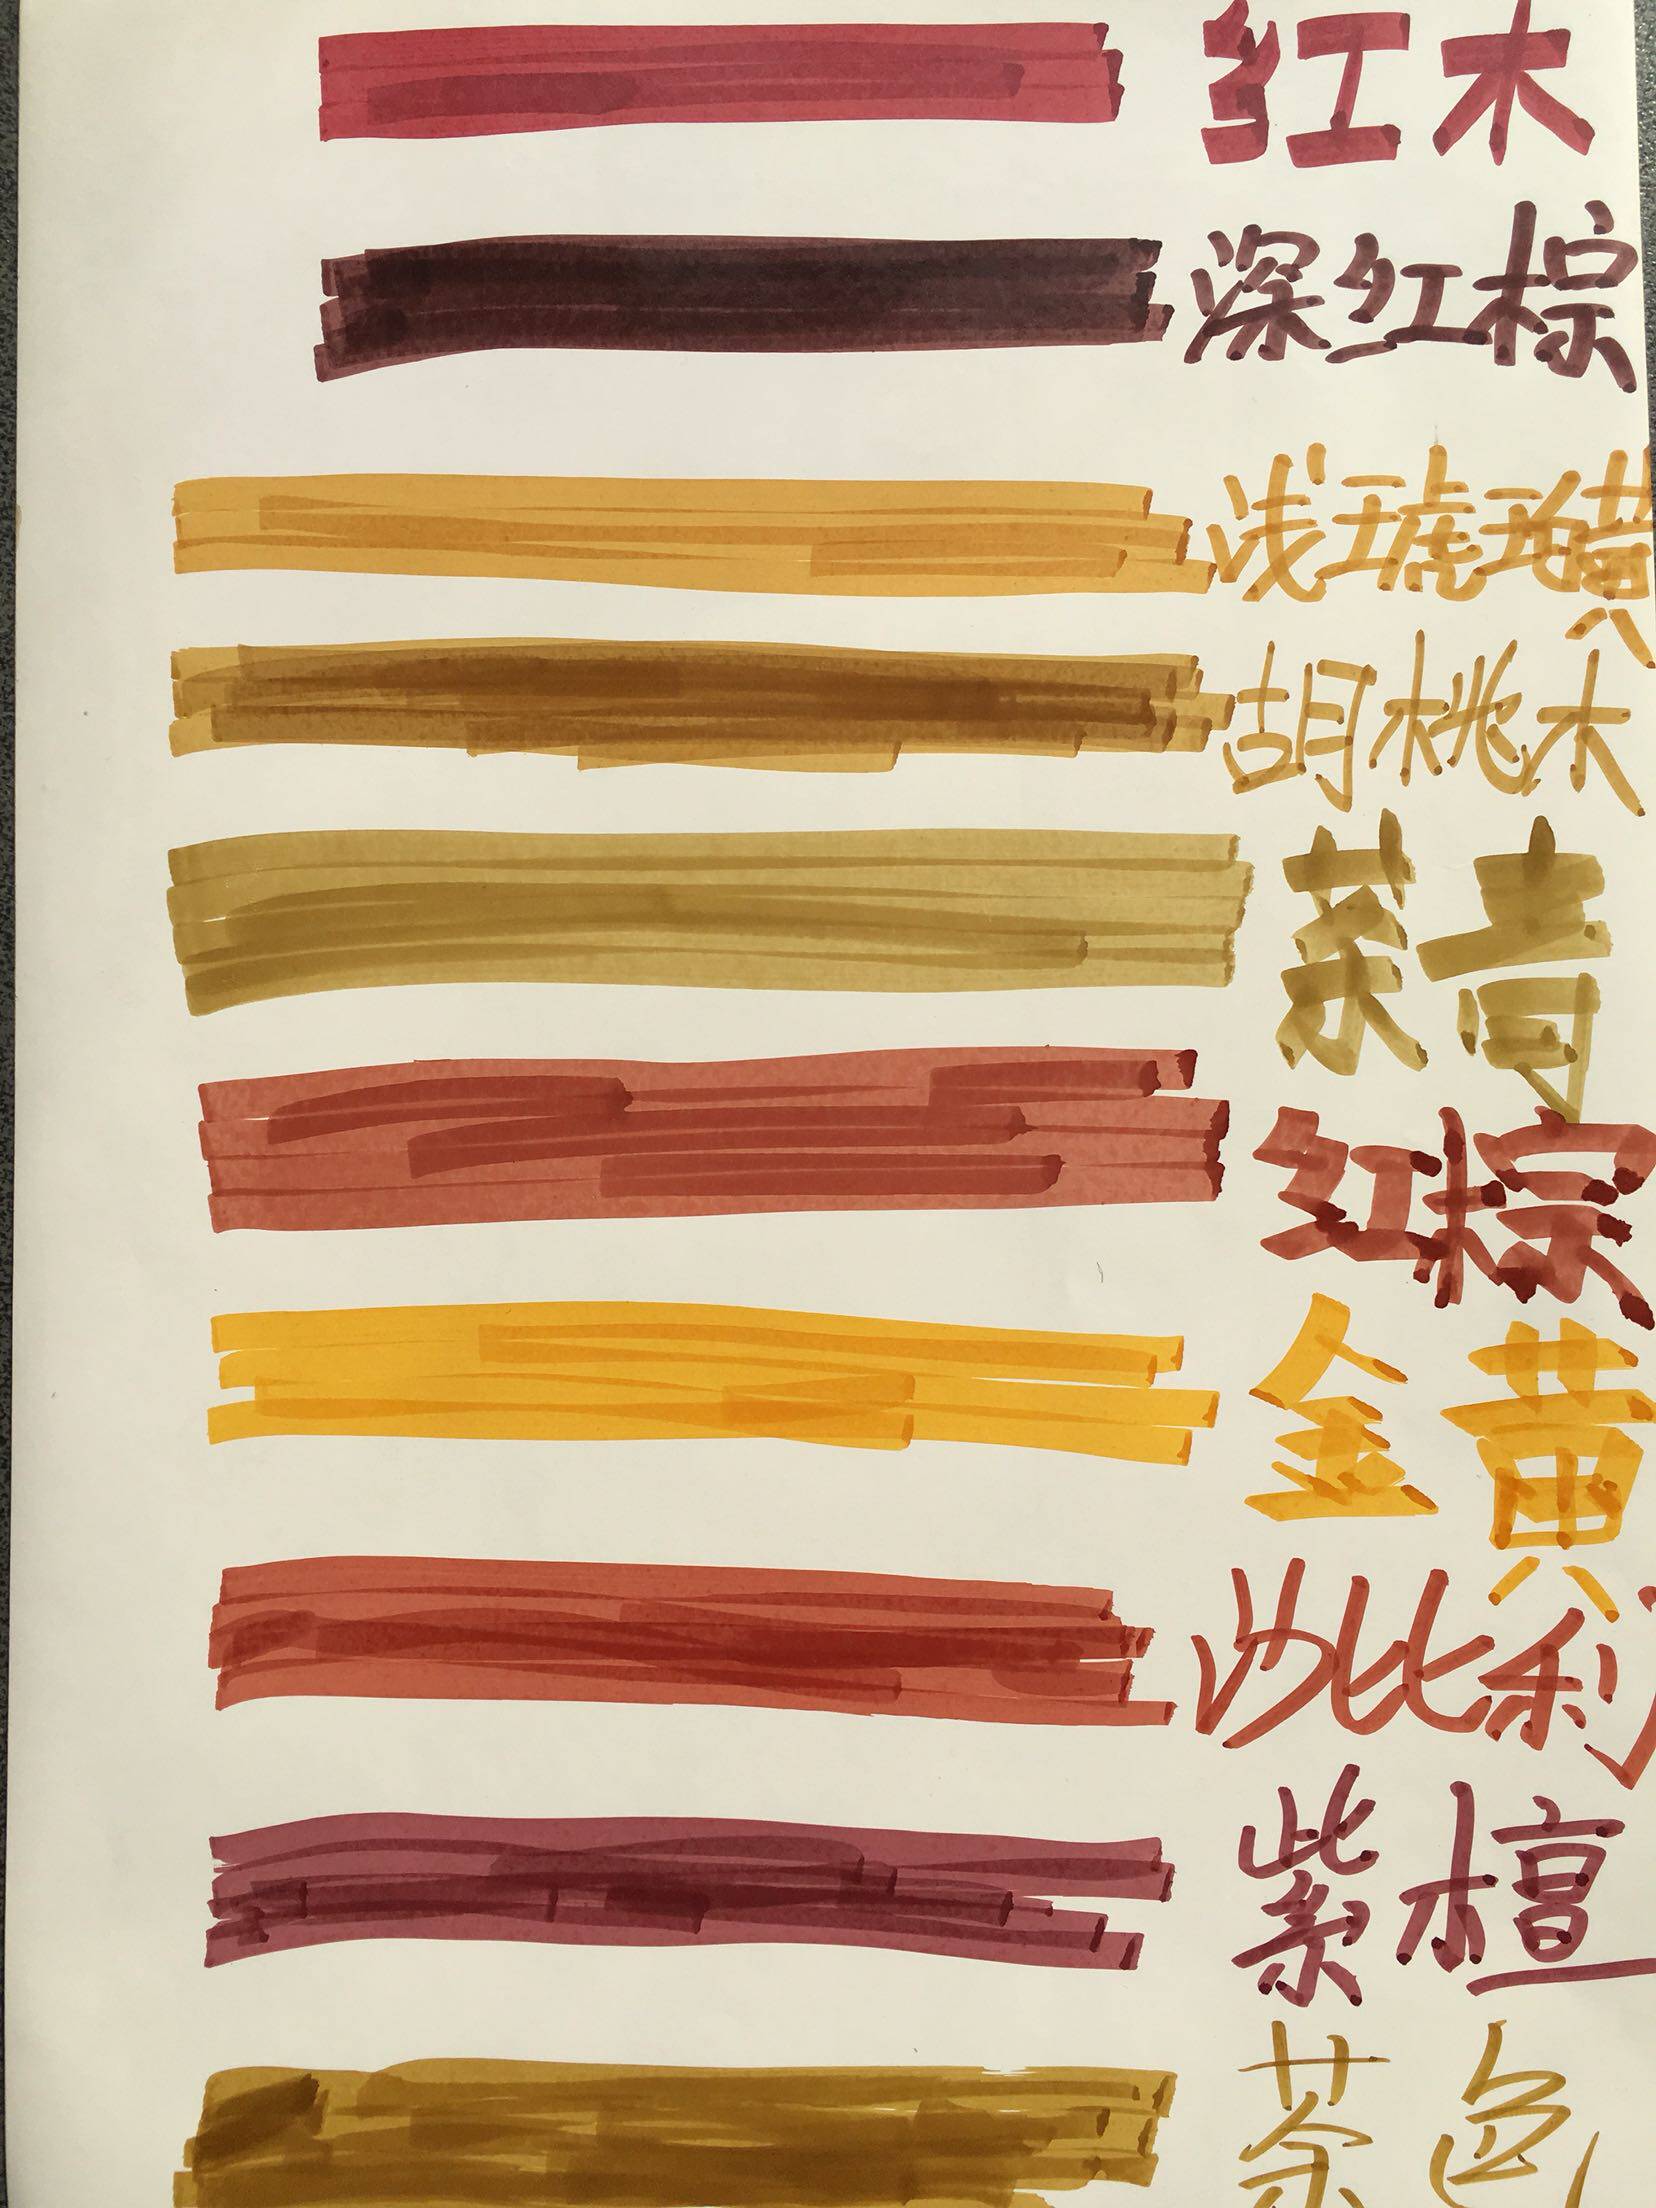 红木
深红棕
浅琥珀黄
胡桃木
茶青
红棕
金黄
沙比利
紫檀
茶色